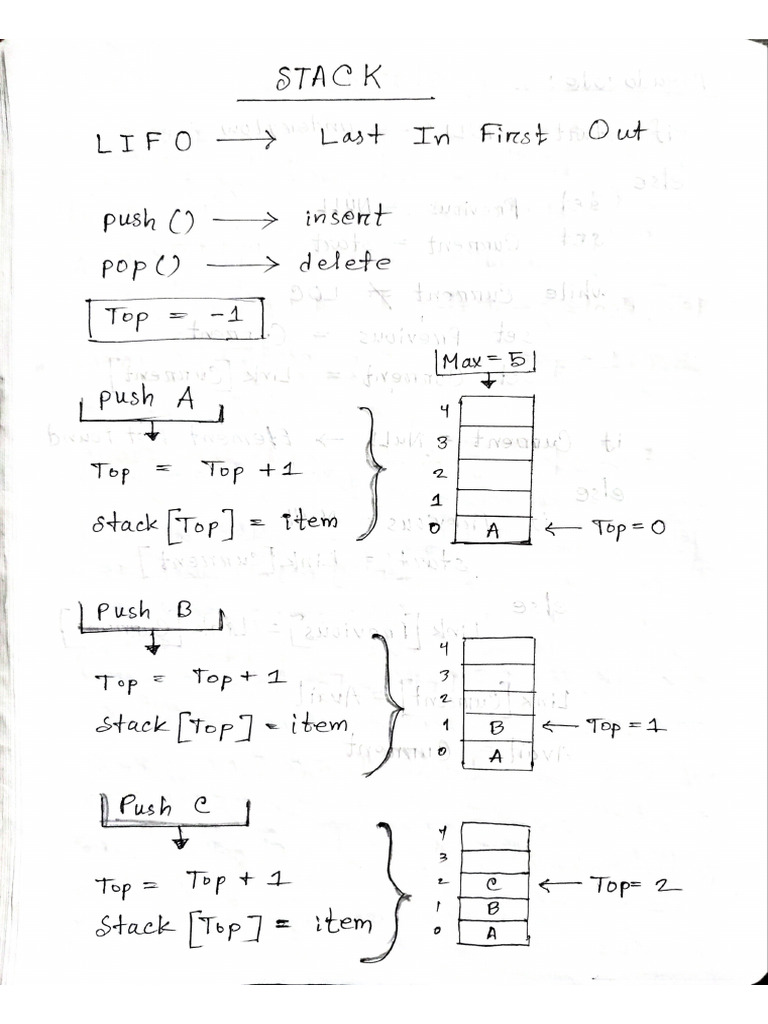 STACK
LIFO → Last In First Out
push () → insert
pop () → delete
Top = -1
Max = 5
push A
Top = Top + 1
Stack [Top] = item
4
3
2
1
0 A ← Top = 0
Push B
Top = Top + 1
Stack [Top] = item
4
3
2
1 B ← Top = 1
0 A
Push C
Top = Top + 1
Stack [Top] = item
4
3
2 C ← Top = 2
1 B
0 A